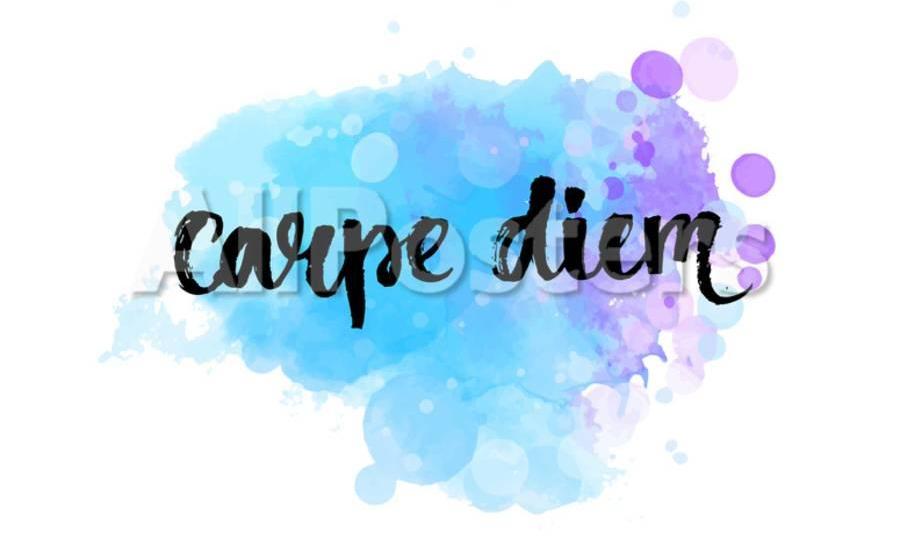 carpe diem
AllPosters